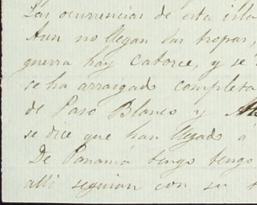 Las ocurrencias de esta isla
Aun no llegan las tropas,
guerra hay catorce, y se
se ha arraigado completa
de Paso Blanco y
se dice que han llegado á
De Panamá tengo tengo
alli seguian con su